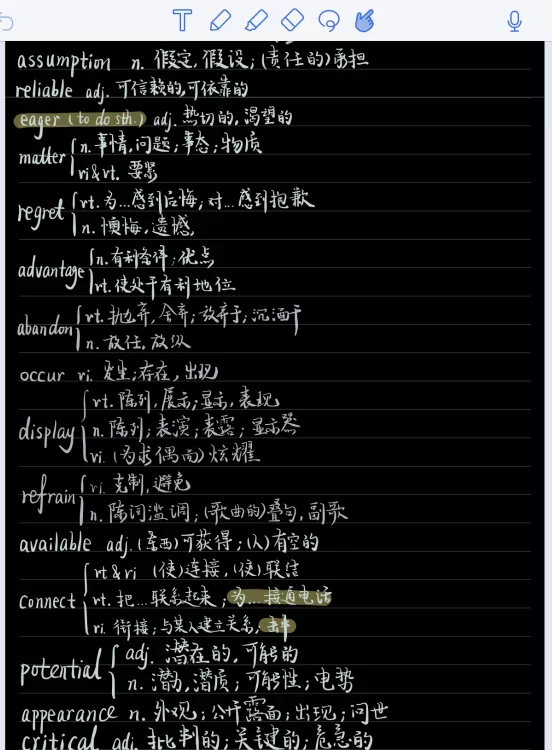 T
assumption n. 假定,假设;(责任的)承担
reliable adj. 可信赖的,可依靠的
eager (to do sth.) adj. 热切的,渴望的
matter { n. 事情,问题;事态;物质
vi&vt. 要紧
regret { vt. 为...感到后悔;对...感到抱歉
n. 懊悔,遗憾
advantage { n. 有利条件;优点
vt. 使处于有利地位
abandon { vt. 抛弃,舍弃;放弃于;沉湎于
n. 放任,放纵
occur vi. 发生;存在,出现
display { vt. 陈列,展示;显示,表现
n. 陈列;表演;表露;显示器
vi. (为求偶而)炫耀
refrain { vi. 克制,避免
n. 陈词滥调;(歌曲的)叠句,副歌
available adj. (东西)可获得;(人)有空的
connect { vt & vi (使)连接,(使)联结
vt. 把...联系起来;为...接通电话
vi. 衔接;与某人建立关系;
potential { adj. 潜在的,可能的
n. 潜力,潜质;可能性;电势
appearance n. 外观;公开露面;出现;问世
critical adj. 批判的;关键的;危急的